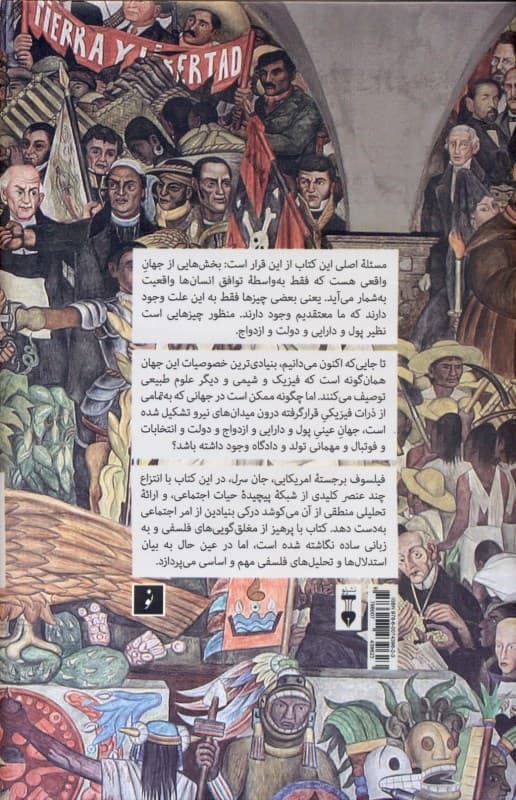 TIERRA Y LIBERTAD
مسئلهٔ اصلی این کتاب از این قرار است: بخش‌هایی از جهانِ
واقعی هست که فقط به‌واسطهٔ توافق انسان‌ها واقعیت
به‌شمار می‌آید. یعنی بعضی چیزها فقط به این علت وجود
دارند که ما معتقدیم وجود دارند. منظور چیزهایی است
نظیر پول و دارایی و دولت و ازدواج.
تا جایی‌که اکنون می‌دانیم، بنیادی‌ترین خصوصیات این جهان
همان‌گونه است که فیزیک و شیمی و دیگر علوم طبیعی
توصیف می‌کنند. اما چگونه ممکن است در جهانی که به‌تمامی
از ذرات فیزیکیِ قرارگرفته درون میدان‌های نیرو تشکیل شده
است، جهانِ عینیِ پول و دارایی و ازدواج و دولت و انتخابات
و فوتبال و مهمانی تولد و دادگاه وجود داشته باشد؟
فیلسوف برجستهٔ امریکایی، جان سرل، در این کتاب با انتزاع
چند عنصر کلیدی از شبکهٔ پیچیدهٔ حیات اجتماعی، و ارائهٔ
تحلیلی منطقی از آن می‌کوشد درکی بنیادین از امر اجتماعی
به‌دست دهد. کتاب با پرهیز از مغلق‌گویی‌های فلسفی و به
زبانی ساده نگاشته شده است، اما در عین حال به بیان
استدلال‌ها و تحلیل‌های فلسفی مهم و اساسی می‌پردازد.
نو